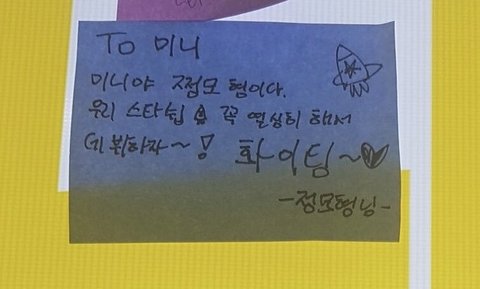 To 미니
미니야 정모 형이다.
우리 스타쉽 꼭 열심히 해서
데뷔하자~!
화이팅~
-정모형님-